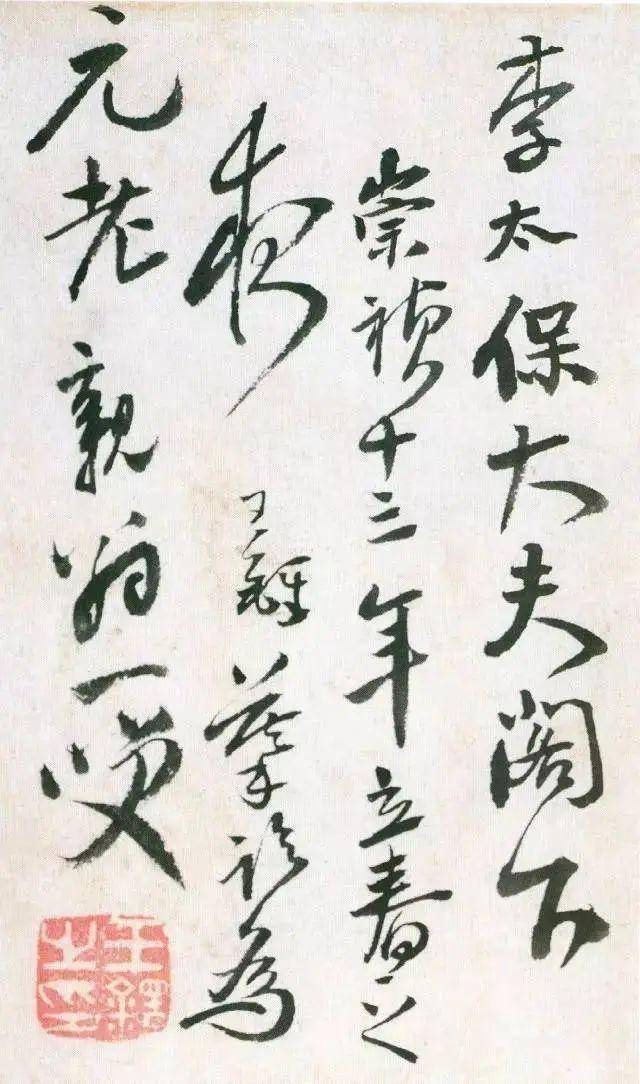 李太保大夫閣下
崇禎十三年立春之
夜 王鐸摹為
元老親翁一笑
王鐸之印